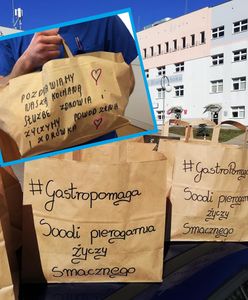 POZDRAWIAMY
NASZĄ KOCHANĄ
SŁUŻBĘ ZDROWIA I
ŻYCZYMY POWODZENIA
I ZDRÓWKA
#Gastropomaga
Soodi pierogarnia
życzy
Smacznego
#GastroPomaga
Soodi pierogarnia
życzy
Smacznego